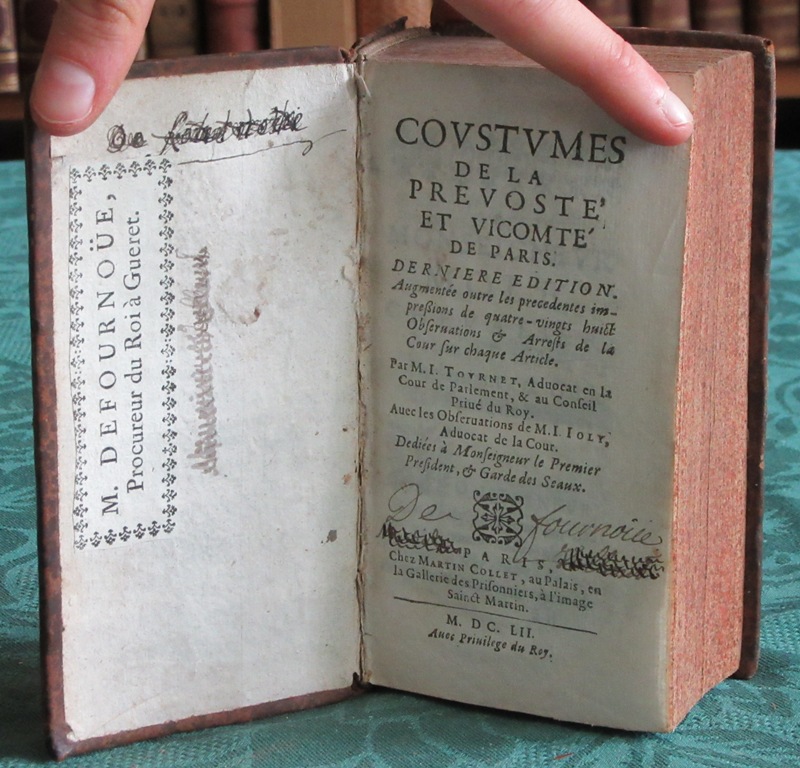 M. DEFOURNOÜE,
Procureur du Roi à Gueret.
COVSTVMES
DE LA
PREVOSTE'
ET VICOMTE'
DE PARIS.
DERNIERE EDITION.
Augmentée outre les precedentes im-
preßions de quatre-vingts huict
Obſeruations & Arreſts de la
Cour ſur chaque Article.
Par M. I. TOVRNET, Aduocat en la
Cour de Parlement, & au Conſeil
Priué du Roy.
Auec les Obſeruations de M. I. IOLY,
Aduocat de la Cour.
Dediées à Monſeigneur le Premier
Preſident, & Garde des Seaux.
De fournoüe
A PARIS,
Chez MARTIN COLLET, au Palais, en
la Gallerie des Priſonniers, à l'image
Sainct Martin.
M. DC. LII.
Auec Priuilege du Roy.